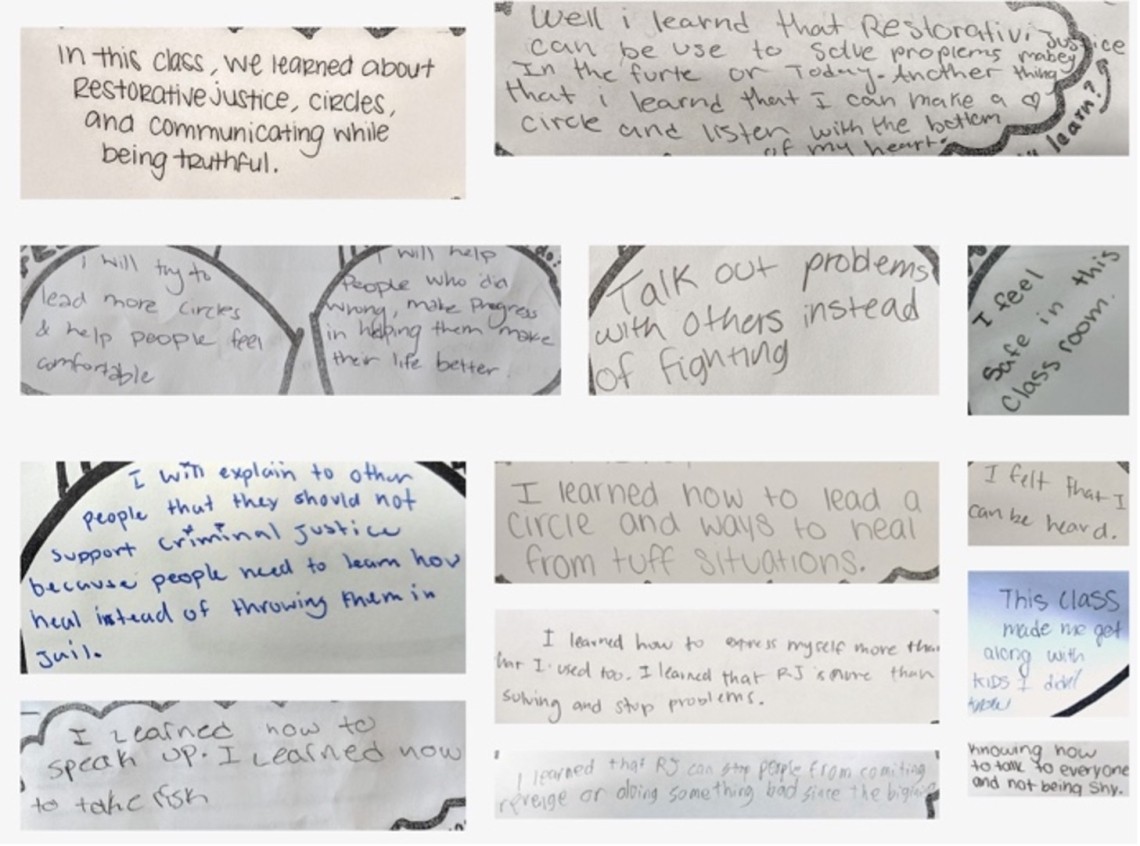 In this class, we learned about
Restorative justice, circles,
and communicating while
being truthful.
Well i learnd that Restorativi Justice
can be use to solve proplems mabey
In the furte or Today. Another thing
that i learnd that I can make a ♡
circle and listen with the bottem
of my heart.
learn?
I will try to
lead more circles
& help people feel
comfortable
I will help
People who did
wrong, make Progress
in helping them make
their life better.
do!
Talk out problems
with others instead
of fighting
I feel
safe in this
class room.
I will explain to other
people that they should not
support criminal justice
because people need to learn how
heal instead of throwing them in
jail.
I learned how to lead a
circle and ways to heal
from tuff situations.
I felt that I
can be heard.
I learned how to express myself more than
I used too. I learned that RJ is more than
solving and stop problems.
This class
made me get
along with
kids I didn't
know
I learned how to
speak up. I learned how
to take risk
I learned that RJ can stop people from comiting
revenge or doing something bad since the bigining
knowing how
to talk to everyone
and not being shy.